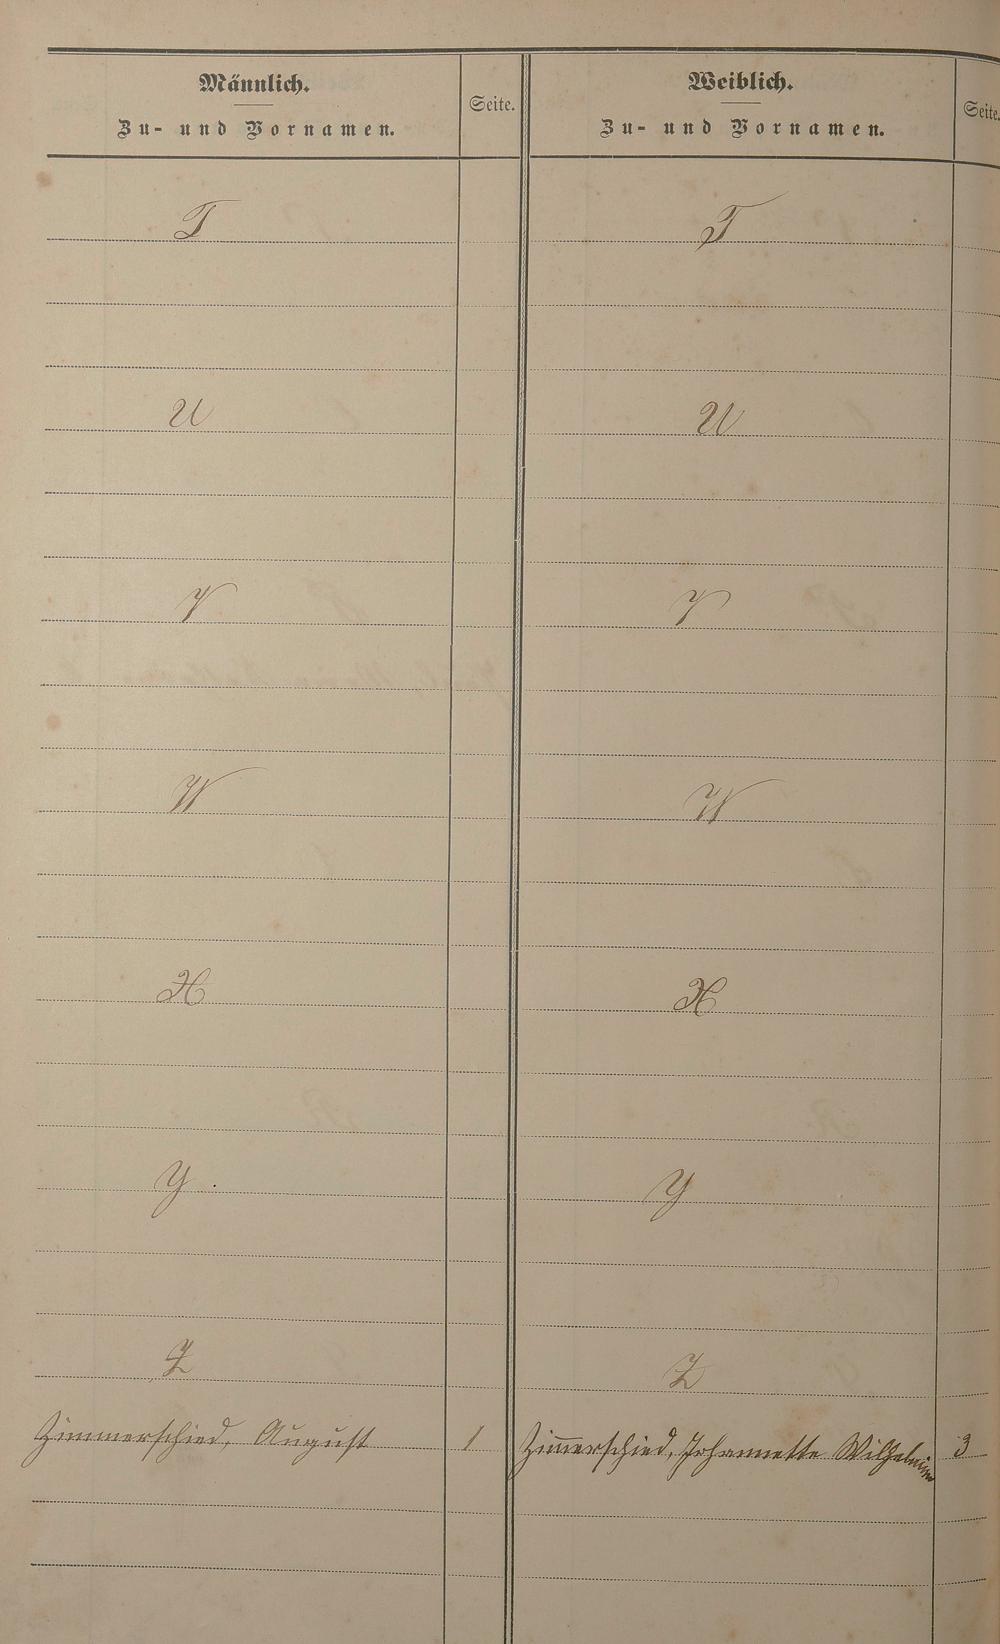 Männlich. Weiblich.
Seite. Seite.
Zu- und Vornamen. Zu- und Vornamen.
T T
U U
V V
W W
X X
Y Y
Z Z
Zimmerschied, August 1 Zim̅erschied, Johannette Wilhelmine 3